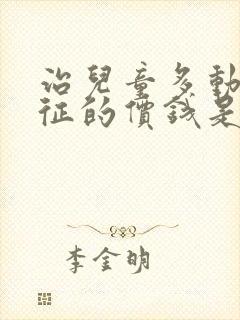 治兒童多動
征的價錢是
李金明